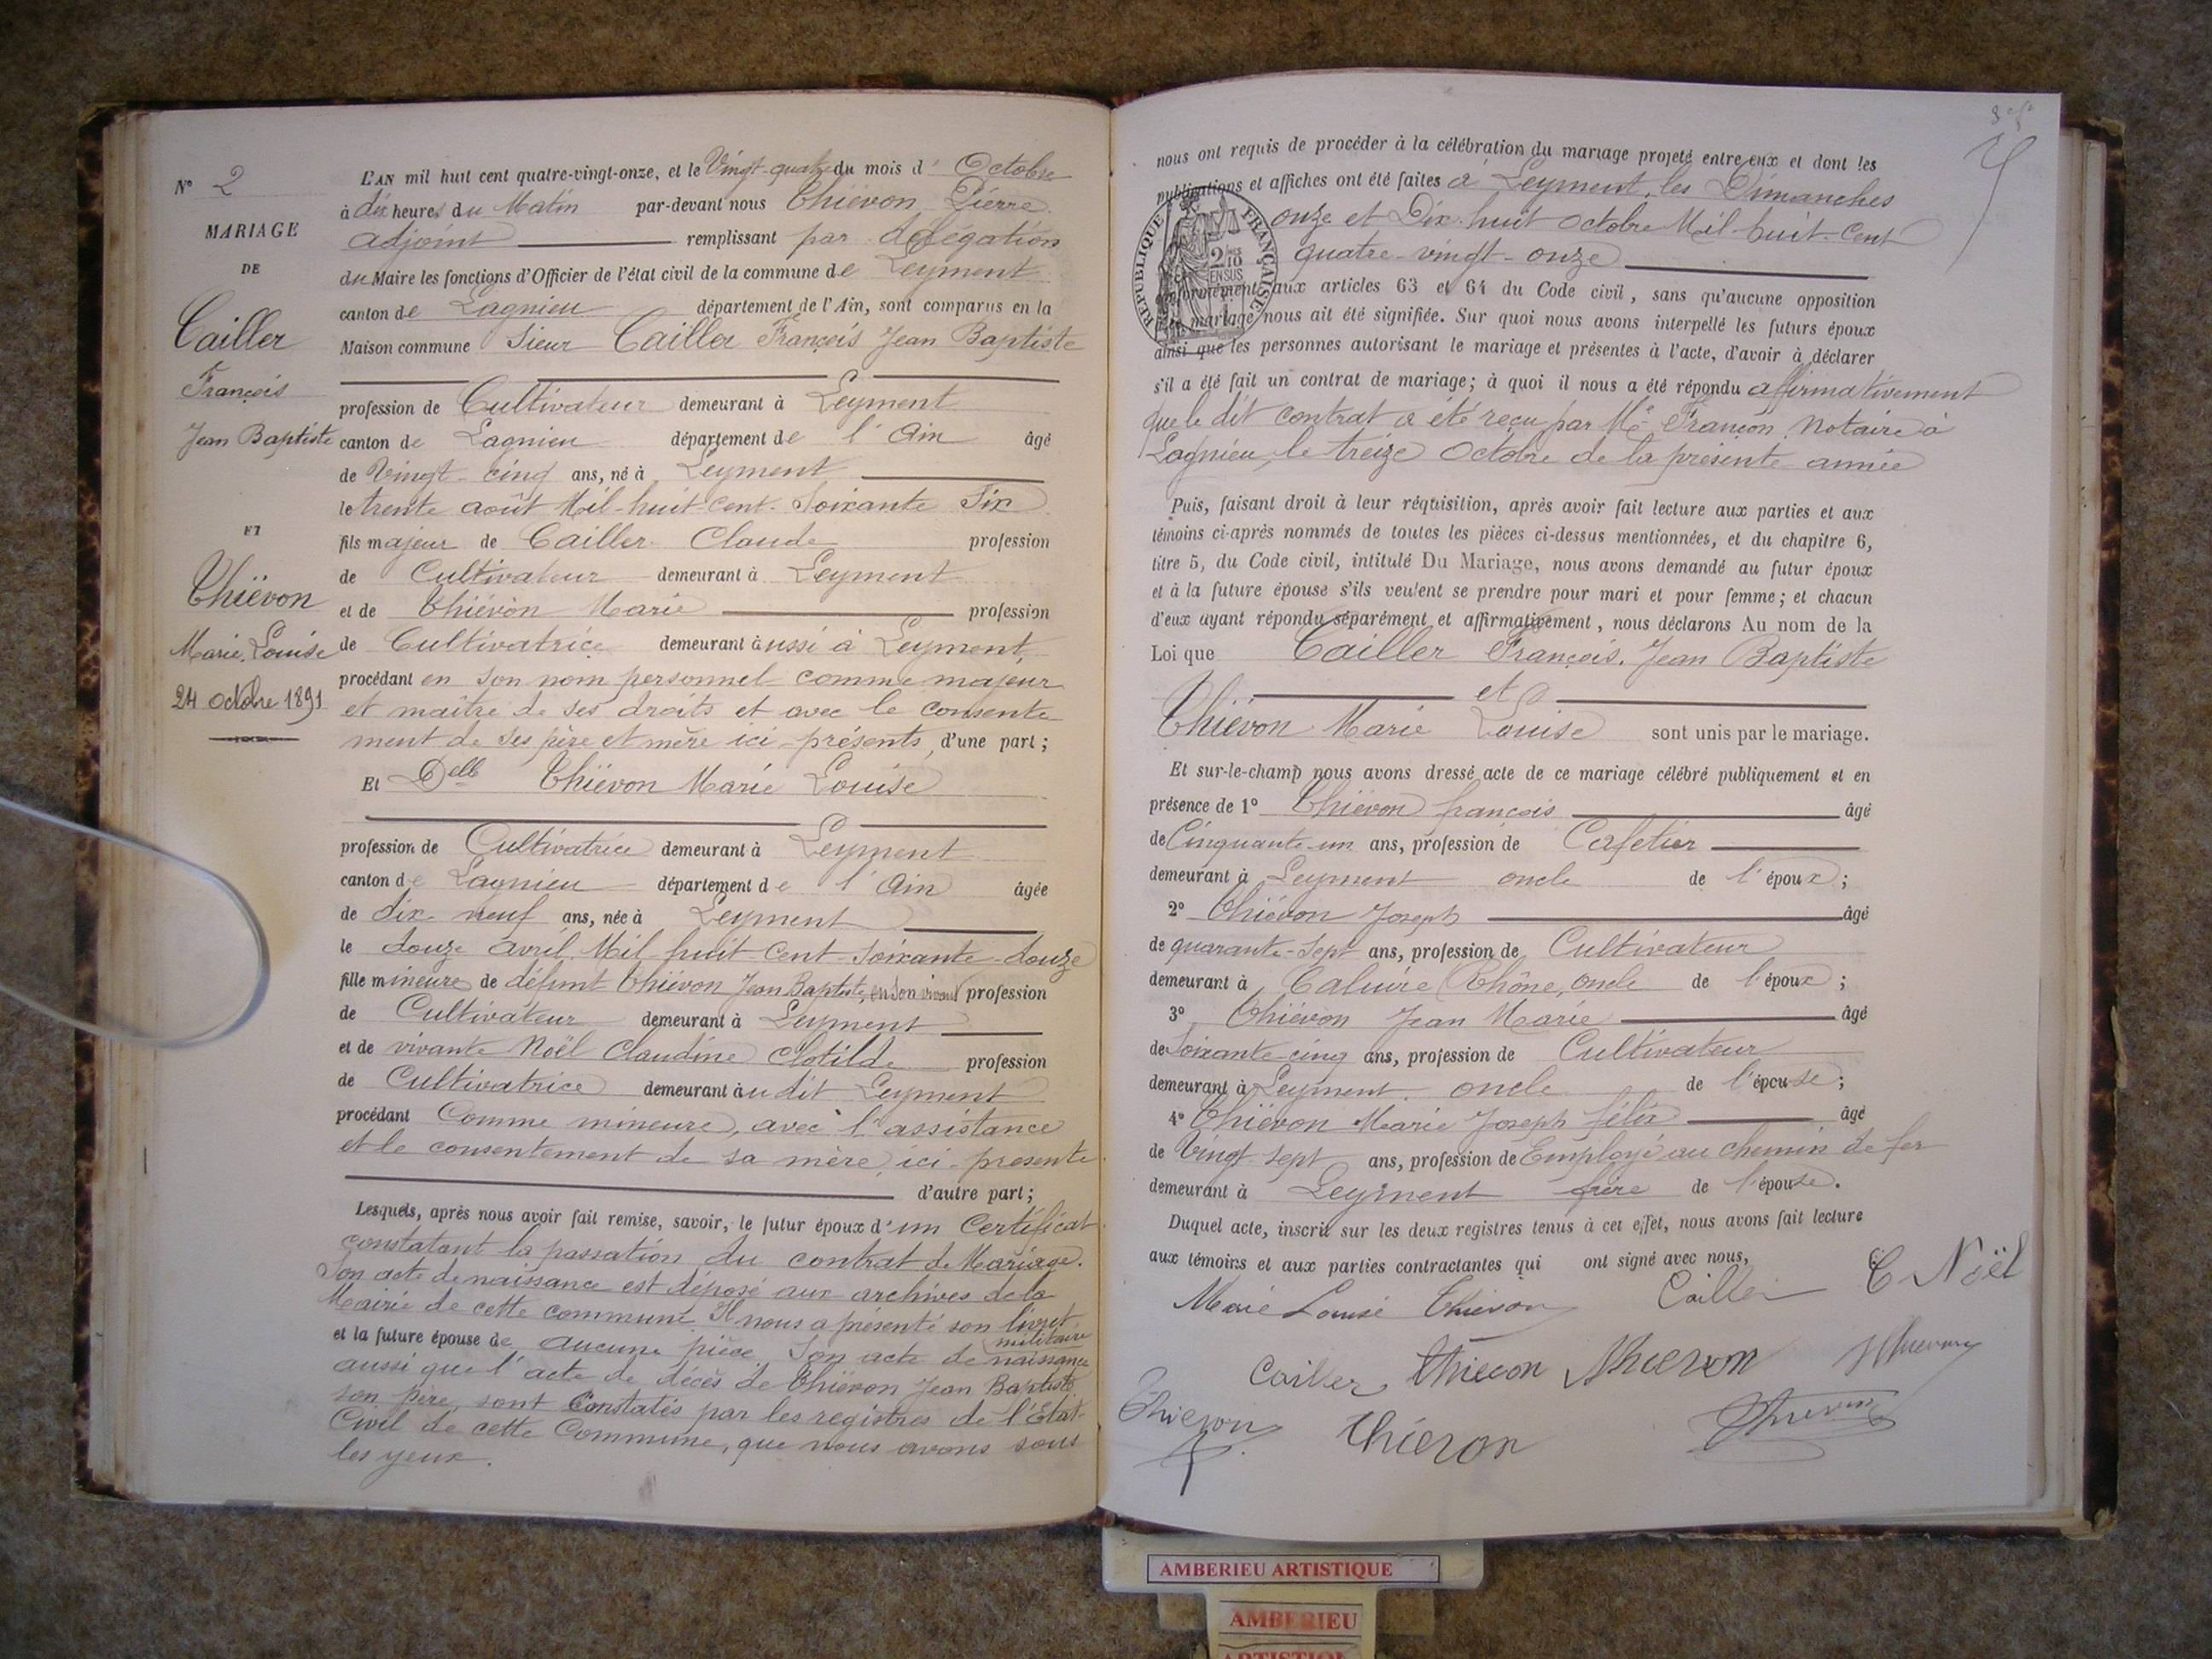 N° 2
MARIAGE
DE
Cailler
François
Jean Baptiste
ET
Thiévon
Marie Louise
24 octobre 1891
L'AN mil huit cent quatre-vingt-onze, et le Vingt-quatre du mois d' Octobre
à dix heures du Matin par-devant nous Thiévon Pierre
adjoint remplissant par délégation
du Maire les fonctions d'Officier de l'état civil de la commune de Leyment
canton de Lagnieu département de l'Ain, sont comparus en la
Maison commune Sieur Cailler François Jean Baptiste
profession de Cultivateur demeurant à Leyment
canton de Lagnieu département de l'Ain âgé
de Vingt-cinq ans, né à Leyment
le trente août Mil-huit-cent-Soixante Six
fils majeur de Cailler Claude profession
de Cultivateur demeurant à Leyment
et de Thiévon Marie profession
de Cultivatrice demeurant aussi à Leyment,
procédant en son nom personnel comme majeur
et maître de ses droits et avec le consente
ment de ses père et mère ici-présents, d'une part;
Et Delle Thiévon Marie Louise
profession de Cultivatrice demeurant à Leyment
canton de Lagnieu département de l'Ain âgée
de dix-neuf ans, née à Leyment
le douze avril Mil-huit-cent-soixante-douze
fille mineure de défunt Thiévon Jean Baptiste, en son vivant profession
de Cultivateur demeurant à Leyment
et de vivante Noël Claudine Clotilde profession
de Cultivatrice demeurant audit Leyment
procédant Comme mineure, avec l'assistance
et le consentement de sa mère ici-présente
d'autre part;
Lesquels, après nous avoir fait remise, savoir, le futur époux d'un Certificat
constatant la passation du contrat de Mariage.
Son acte de naissance est déposé aux archives de la
Mairie de cette commune Il nous a présenté son livret
militaire
et la future épouse de aucune pièce Son acte de naissance
aussi que l'acte de décès de Thiévon Jean Baptiste
son père, sont Constatés par les registres de l'Etat-
Civil de cette Commune, que nous avons sous
les yeux.
nous ont requis de procéder à la célébration du mariage projeté entre eux et dont les
publications et affiches ont été faites à Leyment, les Dimanches
onze et Dix-huit Octobre Mil-huit-Cent
quatre-vingt-onze
REPUBLIQUE FRANÇAISE
2/10 EN SUS
conformément aux articles 63 et 64 du Code civil, sans qu'aucune opposition
mariage nous ait été signifiée. Sur quoi nous avons interpellé les futurs époux
ainsi que les personnes autorisant le mariage et présentes à l'acte, d'avoir à déclarer
s'il a été fait un contrat de mariage; à quoi il nous a été répondu affirmativement
que le dit contrat a été reçu par Me Françon Notaire à
Lagnieu, le treize Octobre de la présente année
Puis, faisant droit à leur réquisition, après avoir fait lecture aux parties et aux
témoins ci-après nommés de toutes les pièces ci-dessus mentionnées, et du chapitre 6,
titre 5, du Code civil, intitulé Du Mariage, nous avons demandé au futur époux
et à la future épouse s'ils veulent se prendre pour mari et pour femme; et chacun
d'eux ayant répondu séparément et affirmativement, nous déclarons Au nom de la
Loi que Cailler François Jean Baptiste
et
Thiévon Marie Louise sont unis par le mariage.
Et sur-le-champ nous avons dressé acte de ce mariage célébré publiquement et en
présence de 1° Thiévon françois âgé
de Cinquante-un ans, profession de Cafetier
demeurant à Leyment oncle de l'époux;
2° Thiévon Joseph âgé
de quarante-sept ans, profession de Cultivateur
demeurant à Caluire (Rhône, oncle de l'époux;
3° Thiévon Jean Marie âgé
de Soixante-cinq ans, profession de Cultivateur
demeurant à Leyment oncle de l'épouse;
4° Thiévon Marie Joseph félix âgé
de Vingt-sept ans, profession de Employé au chemin de fer
demeurant à Leyment frère de l'épouse.
Duquel acte, inscrit sur les deux registres tenus à cet effet, nous avons fait lecture
aux témoins et aux parties contractantes qui ont signé avec nous,
Marie Louise Thiévon Cailler C Noël
Cailler Thievon Thievon
Thievon Thiévon
AMBERIEU ARTISTIQUE
AMBERIEU
ARTISTIQUE